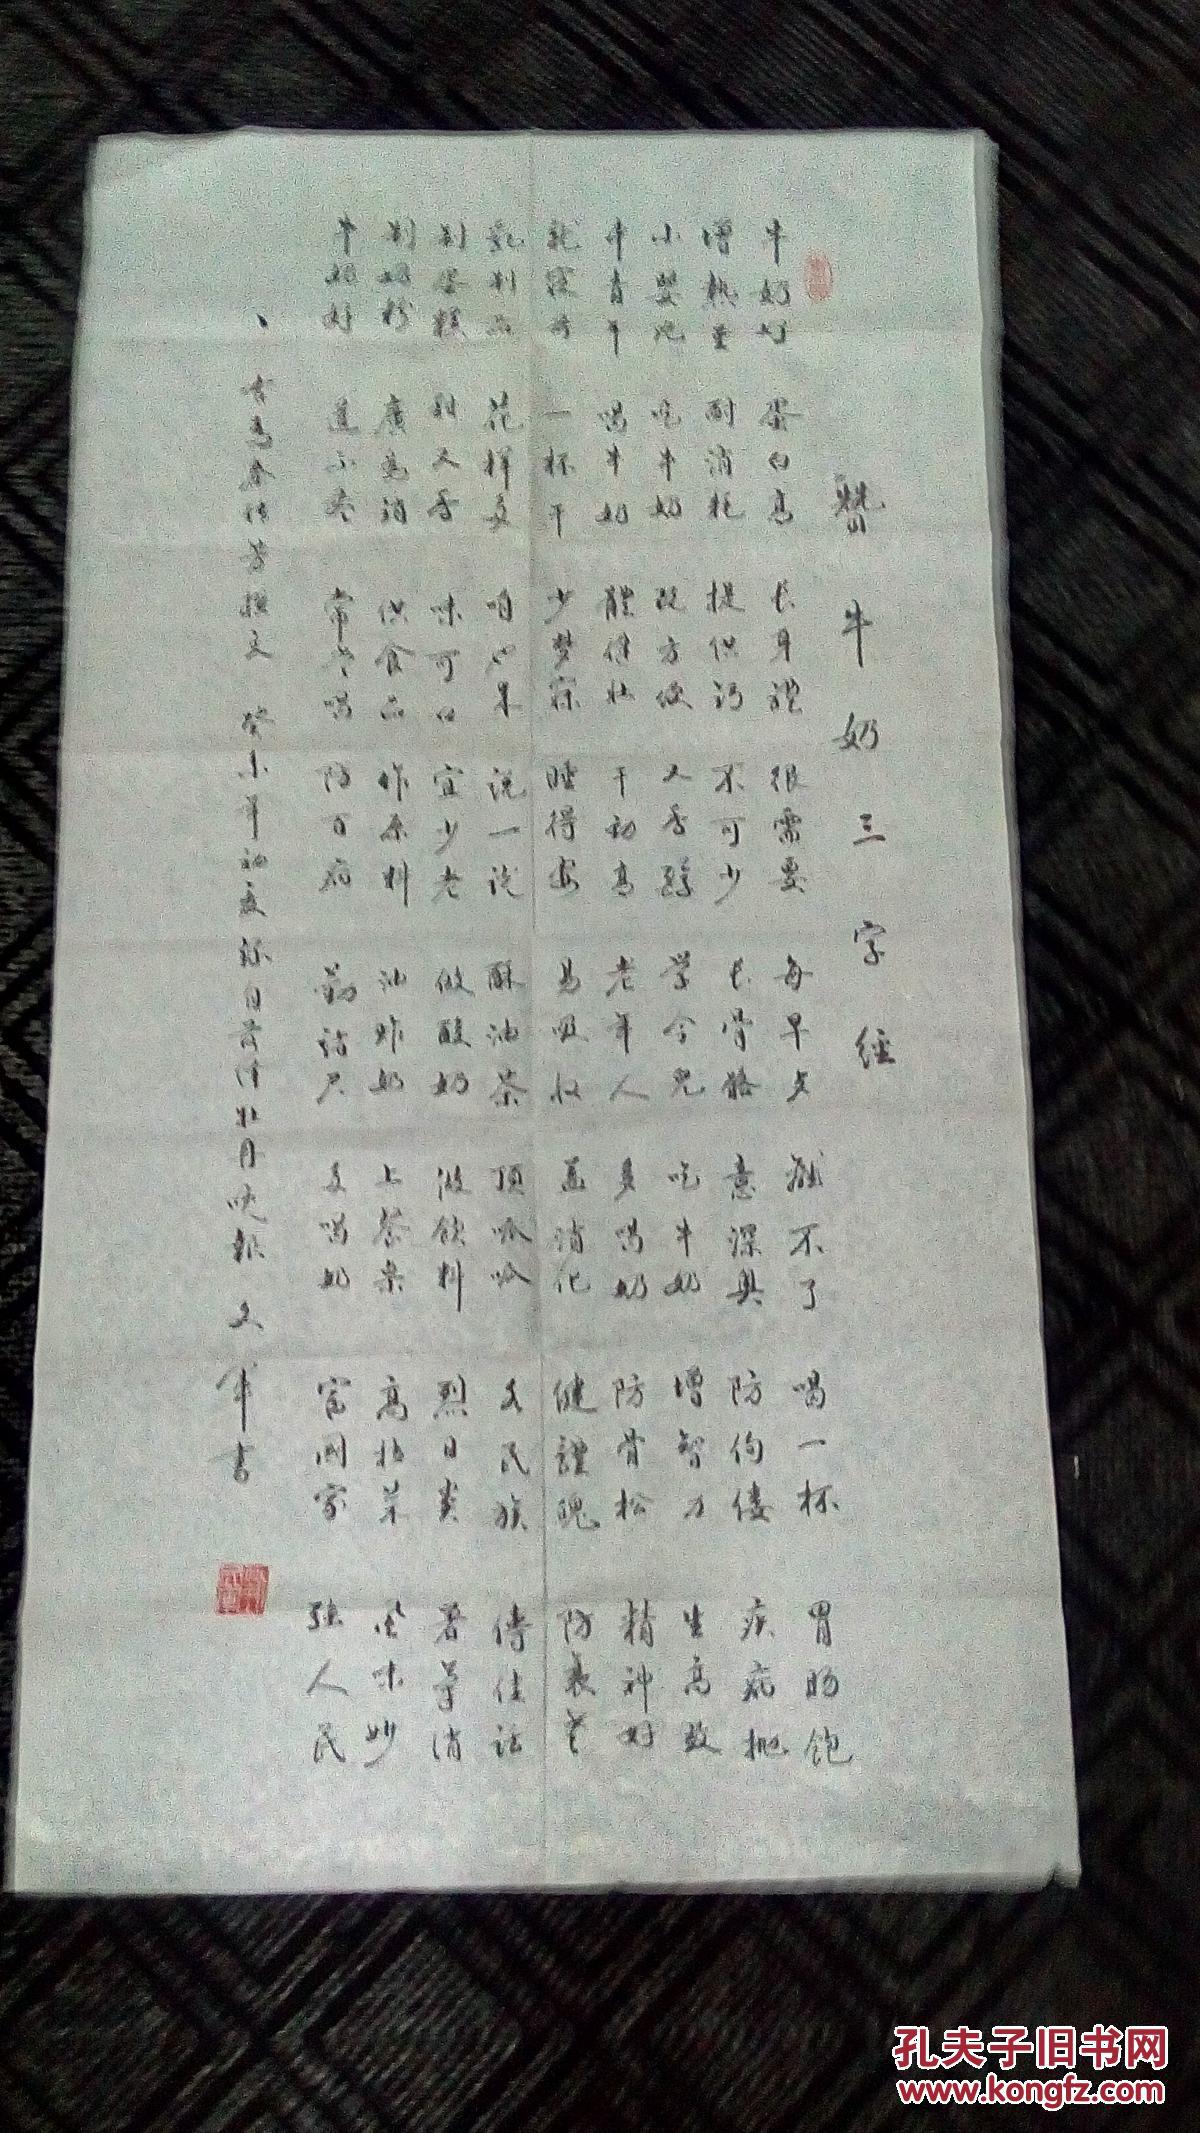 赞牛奶三字经
牛奶好 蛋白高 长身體 很需要 每早点 离不了 喝一杯 胃肠饱
增热量 耐消耗 提供钙 不可少 长骨骼 意深奥 防佝偻 疾病抛
小婴儿 吃牛奶 既方便 又香醇 学令儿 吃牛奶 增智力 生高效
中青年 喝牛奶 體健壮 干劲高 老年人 多喝奶 防骨松 精神好
一杯干 少梦寐 睡得安 易吸收 益消化 健體魄 防衰老
乳制品 花样多 咱如果 说一说 酥油茶 顶呱呱 多民族 传佳话
制蛋糕 甜又香 味可口 宜少老 做酸奶 做饮料 烈日炎 暑等消
制奶粉 廣为消 供食品 作原料 油炸奶 上茶桌 高档菜 风味妙
牛奶好 道不尽 常常喝 防百病 劝诸君 多喝奶 富国家 强人民
撰文 癸未年初夏 录自菏泽牡丹晚报 文军書
孔夫子旧书网
www.kongfz.com